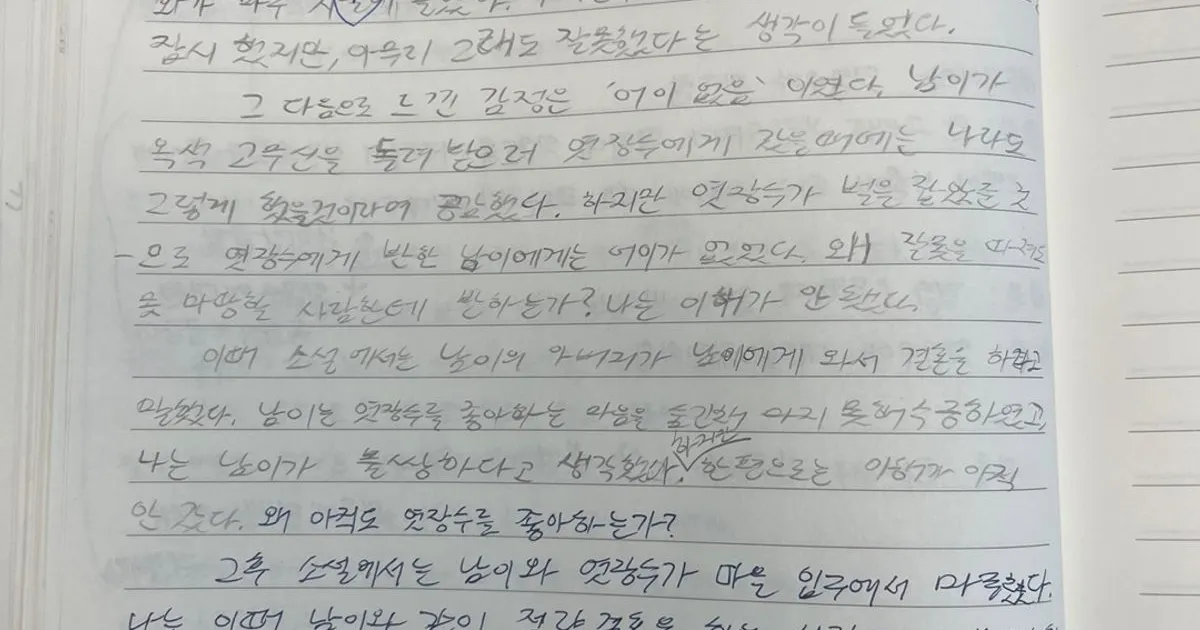 잠시 했지만, 아무리 그래도 잘못했다는 생각이 들었다.
그 다음으로 느낀 감정은 '어이 없음' 이였다. 남이가
옥색 고무신을 돌려 받으러 엿장수에게 갔을때에는 나라도
그렇게 했을것이라며 공감했다. 하지만 엿장수가 벌을 잡았른 것
으로 엿장수에게 반한 남이에게는 어이가 없었다. 왜 잘못을 따져도
뭇 마땅할 사람한테 반하는가? 나는 이해가 안 됐다.
이때 소설에서는 남이의 아버지가 남이에게 와서 결혼을 하라고
말했다. 남이는 엿장수를 좋아하는 마음을 숨긴채 마지 못해 수긍하였고,
나는 남이가 불쌍하다고 생각했다. 하지만 한편으로는 이해가 아직
안 갔다. 왜 아직도 엿장수를 좋아하는가?
그후 소설에서는 남이와 엿장수가 마을 입구에서 마주했다.
나는 이때 남이와 같이